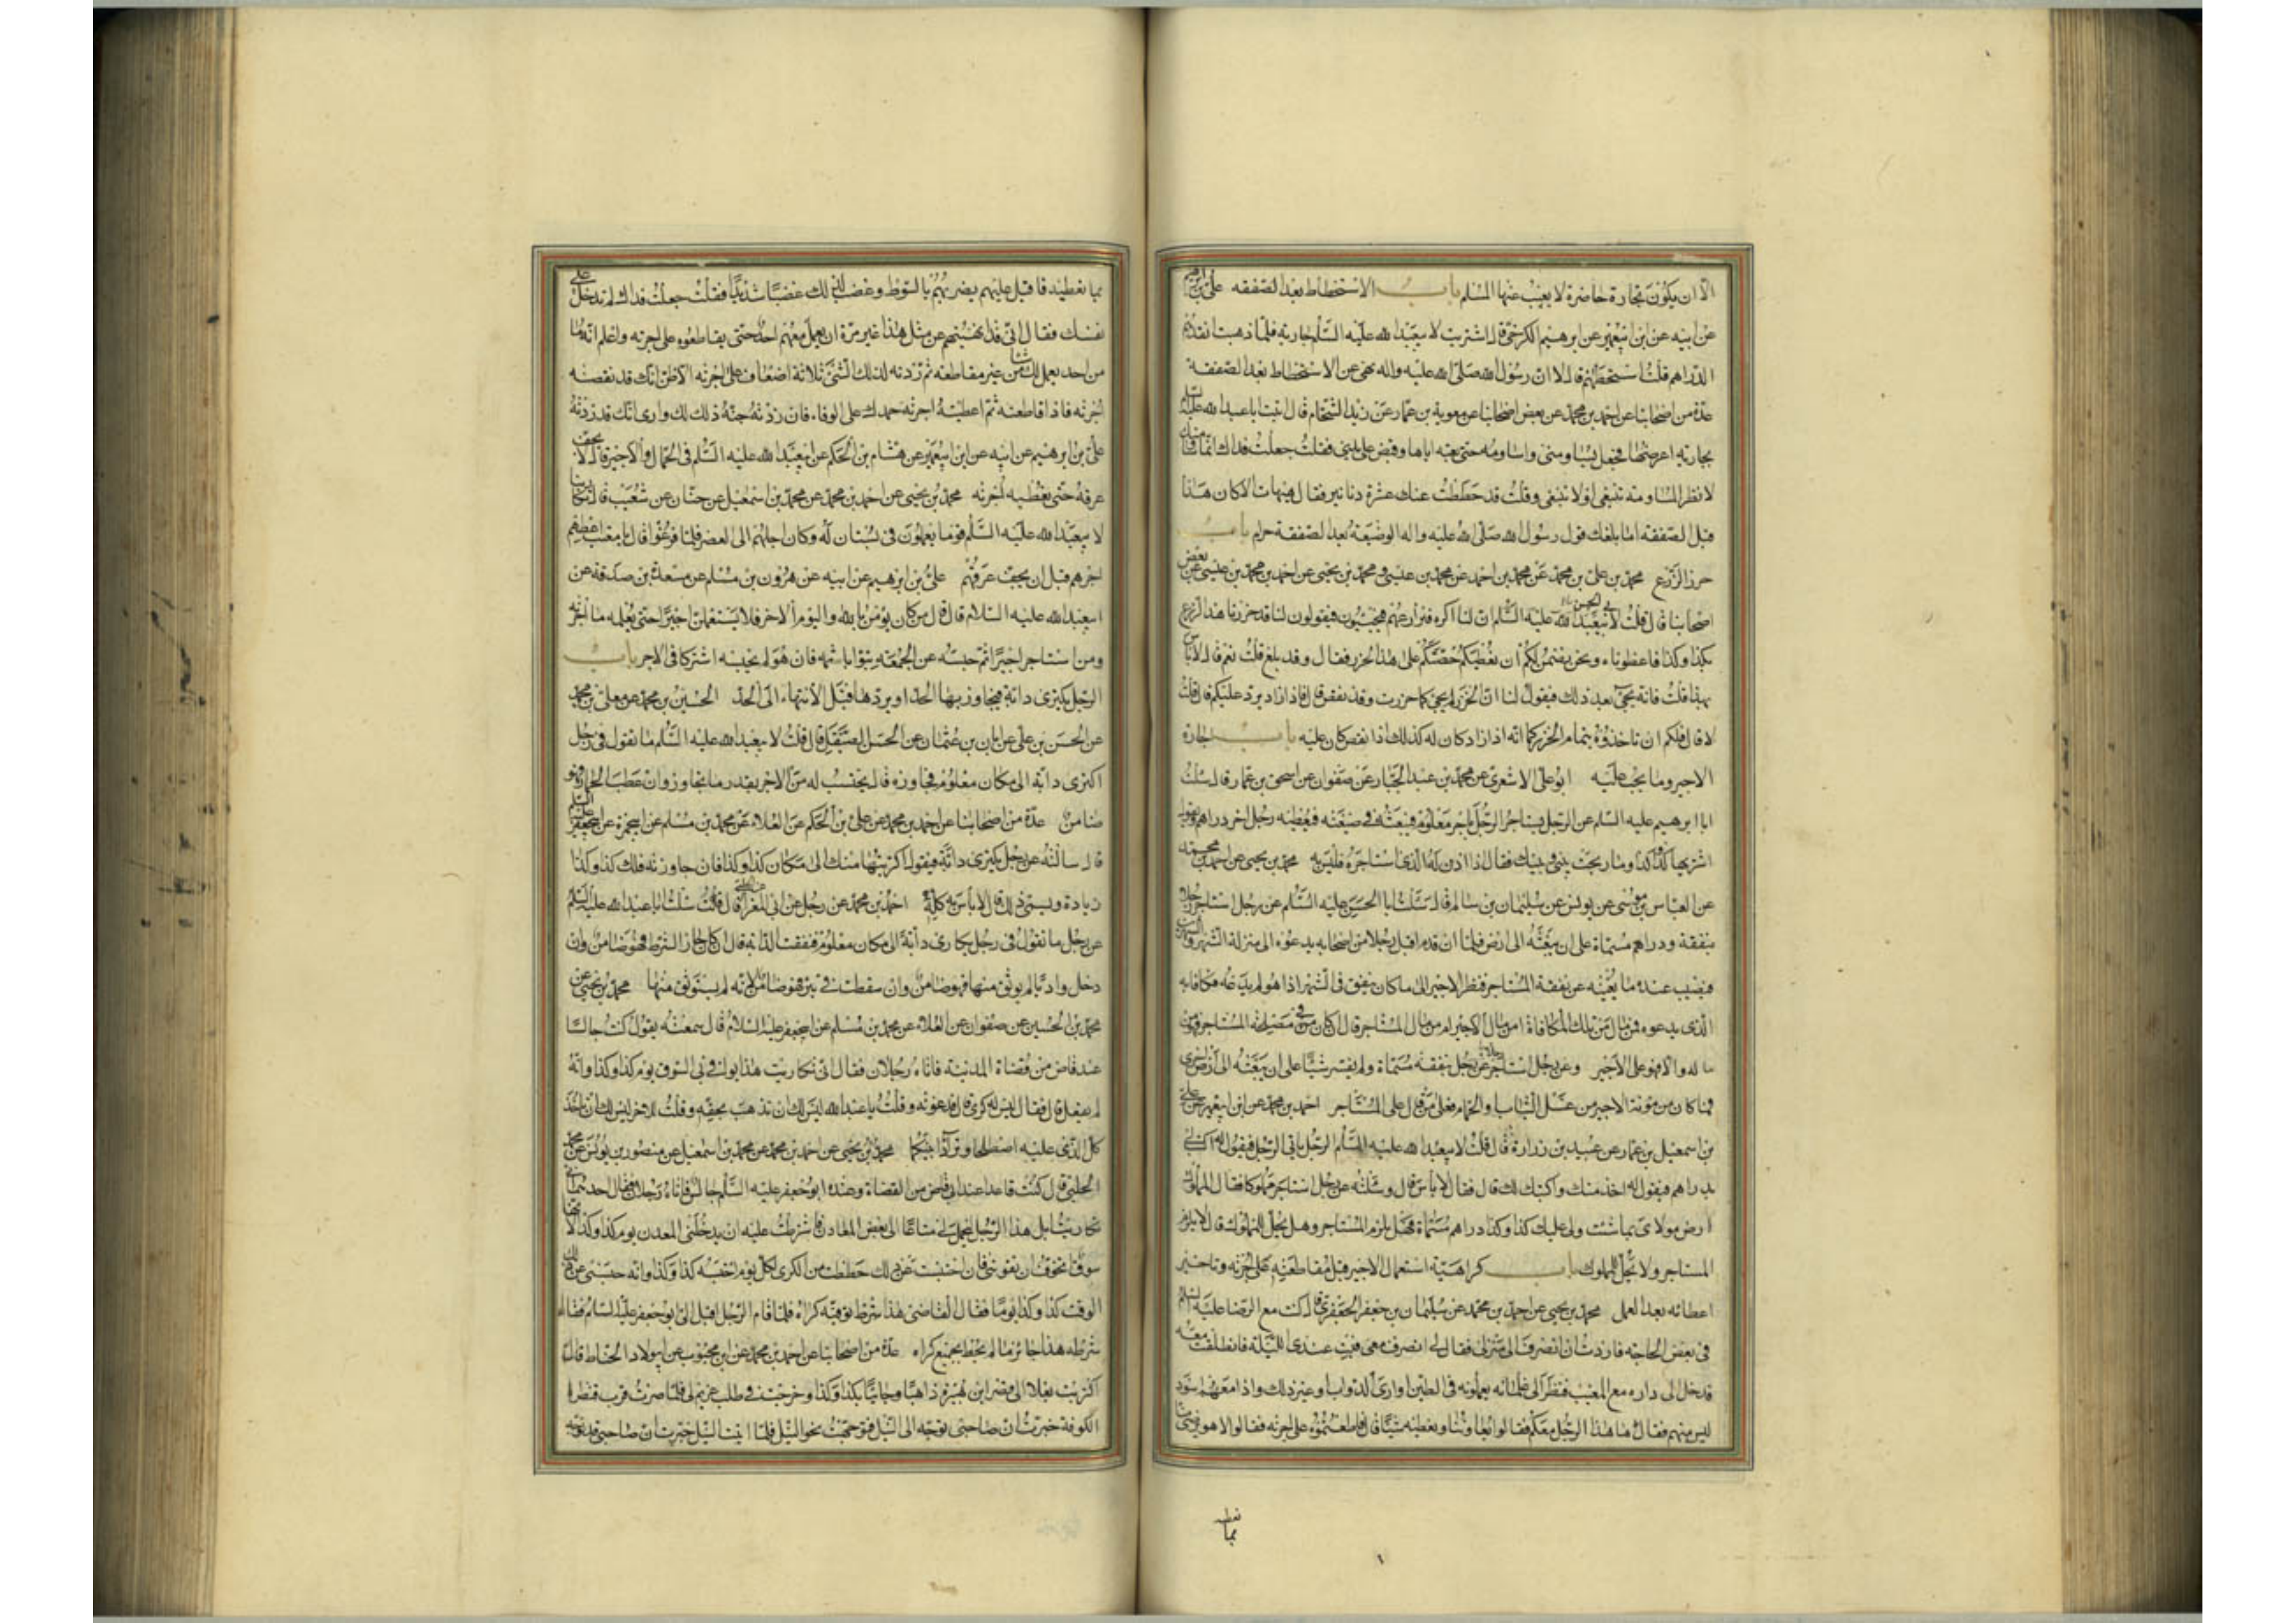 الا ان يكون تجارة حاضرة لا يغيب عنها المسلم باب الاستحطاط بعد الصفقه على بن ابرهيم
عن ابيه عن ابن ابيعمير عن ابرهيم الكرخى قال اشتريت لابيعبد الله عليه السلم جارية فلما ذهبت انقدهم
الدراهم قلت استحطهم قال لا ان رسول الله صلى الله عليه واله نهى عن الاستحطاط بعد الصفقة
عدة من اصحابنا عن احمد بن محمد عن بعض اصحابنا عن معوية بن عمار عن زيد الشحام قال اتيت ابا عبد الله عليه السلم
بجارية اعرضها فجعل يساومنى واساومه حتى بعته اياها وقبض على يدى فقلت جعلت فداك انما ساومتك
لانظر المساومة تنبغى او لا تنبغى وقلت قد حططت عنك عشرة دنانير فقال هيهات الا كان هذا
قبل الصفقة اما بلغك قول رسول الله صلى الله عليه واله الوضيعة بعد الصفقة حرام باب
حرز الزرع محمد بن على بن محمد عن محمد بن احمد عن محمد بن عيسى و محمد بن يحيى عن احمد بن محمد بن عيسى عن بعض
اصحابنا قال قلت لابى الحسن عليه السلم ان لنا اكره فنزارعهم فيجيئون فيقولون لنا قد حزرنا هذا الزرع
بكذا وكذا فاعطوناه ونحن نضمن لكم ان نعطيكم حصتكم على هذا الحزر فقال وقد بلغ قلت نعم قال لا باس
بهذا قلت فانه يجئ بعد ذلك فيقول لنا ان الحزر لم يجئ كما حزرت وقد نقص قال فاذا زاد يرد عليكم قلت
لا قال فلكم ان تاخذوه بتمام الحزر كما انه اذا زاد كان له كذلك اذا نقص كان عليه باب اجارة
الاجير وما يجب عليه ابو على الاشعرى عن محمد بن عبد الجبار عن صفوان عن اسحق بن عمار قال سئلت
ابا ابرهيم عليه السلم عن الرجل يستاجر الرجل باجر معلوم فيبعثه فى ضيعته فيعطيه رجل اخر دراهم ويقول
اشتر بها كذا وكذا وما ربحت بينى وبينك فقال اذا اذن له الذى استاجره فليس به محمد بن يحيى عن احمد بن محمد
عن العباس بن موسى عن يونس عن سليمان بن سالم قال سئلت ابا الحسن عليه السلم عن رجل استاجر رجلا
بنفقة ودراهم مسماة على ان يبعثه الى ارض فلما ان قدم اقبل رجلا من اصحابه يدعوه الى منزله الشهر والشهرين
فيصيب عنده ما يغنيه عن نفقة المستاجر فنظر الاجير الى ما كان ينفق فى الشهر اذا هو لم يدعه فكافا به
الذى يدعوه فمن مال من تلك المكافاة امن مال الاجير ام من مال المستاجر قال ان كان فى مصلحة المستاجر فهو من
ماله والا فهو على الاجير وعن رجل استاجر رجل بنفقة مسماة ولم يفسر شيئا على ان يبعثه الى ارض اخرى
فما كان من مونة الاجير من غسل الثياب والحمام فعلى من قال على المستاجر احمد بن محمد عن ابن ابيعمير عن على
بن اسمعيل بن عمار عن عبيد بن زرارة قال قلت لابيعبد الله عليه السلم الرجل ياتى الرجل فيقول اكتب لى
بدراهم فيقول له اخذ منك واكتب لك قال فقال لا باس قال وسئلته عن رجل استاجر مملوكا فقال المملوك
ارض مولاى بما شئت ولى عليك كذا وكذا دراهم مسماة فهل يلزم المستاجر وهل يحل للمملوك قال لا يلزم
المستاجر ولا تحل للمملوك باب كراهية استعمال الاجير قبل مقاطعته على اجرته وتاخير
اعطائه بعد العمل محمد بن يحيى عن احمد بن محمد عن سليمان بن جعفر الجعفرى قال كنت مع الرضا عليه السلم
فى بعض الحاجة فاردت ان انصرف الى منزلى فقال لى انصرف معى فبت عندى الليلة فانطلقت معه
فدخل الى داره مع المغيب فنظر الى غلمانه يعملون فى الطين اوارى الدواب وغير ذلك واذا معهم اسود
ليس منهم فقال ما هذا الرجل معكم فقالوا يعاوننا ونعطيه شيئا قال قاطعتموه على اجرته فقالوا لا هو يرضى منا
بما نعطيه
بما نعطيه فاقبل عليهم يضربهم بالسوط وغضب لذلك غضبا شديدا فقلت جعلت فداك لم تدخل على
نفسك فقال انى قد نهيتهم عن مثل هذا غير مرة ان يعمل معهم احد حتى يقاطعوه على اجرته واعلم انه ما
من احد يعمل لك شيئا من غير مقاطعه ثم زدته لذلك الشئ ثلاثة اضعاف على اجرته الا ظن انك قد نقصته
اجرته فاذا قاطعته ثم اعطيته اجرته حمدك على الوفاء فان زدته حبة ذلك لك وراى انك قد زدته
على بن ابرهيم عن ابيه عن ابن ابيعمير عن هشام بن الحكم عن ابيعبد الله عليه السلم فى الحمال والاجير قال لا يجف
عرقه حتى تعطيه اجرته محمد بن يحيى عن احمد بن محمد عن محمد بن اسمعيل عن حنان عن شعيب قال تكارينا
لابيعبد الله عليه السلم قوما يعملون فى بستان له وكان اجلهم الى العصر فلما فرغوا قال لمعتب اعطهم
اجرهم قبل ان يجف عرقهم على بن ابرهيم عن ابيه عن هرون بن مسلم عن مسعدة بن صدقة عن
ابيعبد الله عليه السلام قال قال من كان يؤمن بالله واليوم الاخر فلا يستعملن اجيرا حتى يعلمه ما اجره
ومن استاجر اجيرا ثم حبسه عن الجمعة يبوا باثمه فان هو لم يحبسه اشتركا فى الاجر باب
الرجل يكترى دابة فيجاوز بها الحد او يردها قبل الانتهاء الى الحد الحسين بن محمد عن معلى بن محمد
عن الحسن بن على عن ابان بن عثمان عن الحسن الصيقل قال قلت لابيعبد الله عليه السلم ما تقول فى رجل
اكترى دابة الى مكان معلوم فجاوزه قال يحتسب له من الاجر بقدر ما تجاوز وان عطب الحمار فهو
ضامن عدة من اصحابنا عن احمد بن محمد عن على بن الحكم عن العلاء عن محمد بن مسلم عن ابيحمزة عن ابيجعفر عليه السلم
قال سالته عن رجل يكترى دابة فيقول اكتريتها منك الى مكان كذا وكذا فان جاوزته فلك كذا وكذا
زيادة ويسمى ذلك قال لا باس به كله احمد بن محمد عن رجل عن ابى المغرا قال قلت سئلت ابا عبد الله عليه السلم
عن رجل ما تقول فى رجل يكارى دابة الى مكان معلوم فنفقت الدابة قال ان كان جاز الشرط فهو ضامن وان
دخل واديا لم يوثق منها فهو ضامن وان سقطت فى بئر فهو ضامن لانه لم يستوثق منها محمد بن يحيى عن
محمد بن الحسين عن صفوان عن العلاء عن محمد بن مسلم عن ابيجعفر عليه السلام قال سمعته يقول كنت جالسا
عند قاض من قضاة المدينة فاتاه رجلان فقال انى تكاريت هذا يوافى بى السوق يوم كذا وكذا وانه
لم يفعل قال فقال ليس له كرى قال فدعوته وقلت يا عبد الله ليس لك ان تذهب بحقه وقلت للاخر ليس لك ان تاخذ
كل الذى عليه اصطلحا وترادا بينكما محمد بن يحيى عن احمد بن محمد عن محمد بن اسمعيل عن منصور بن يونس عن محمد
الحلبى قال كنت قاعدا عند قاض من القضاة وعنده ابو جعفر عليه السلم جالس فاتاه رجلان فقال احدهما انى
تكاريت ابل هذا الرجل ليحمل لى متاعا الى بعض المعادن فاشترطت عليه ان يدخلنى المعدن يوم كذا وكذا لانها
سوق اتخوف ان يفوتنى فان احتبست عن ذلك حططت من الكرى لكل يوم احتبسه كذا وكذا وانه حبسنى عن ذلك
الوقت كذا وكذا يوما فقال القاضى هذا شرط فاسد وفه كراه فلما قام الرجل اقبل الى ابو جعفر عليه السلام فقال
شرطه هذا جائز ما لم يحط بجميع كراه عدة من اصحابنا عن احمد بن محمد عن ابن محبوب عن ابيولاد الحناط قال
اكتريت بغلا الى قصر ابن هبيرة ذاهبا وجائيا بكذا وكذا وخرجت فى طلب غريم لى فلما صرت قرب قنطرة
الكوفة خبرت ان صاحبى توجه الى النيل فتوجهت نحو النيل فلما اتيت النيل خبرت ان صاحبى قد توجه